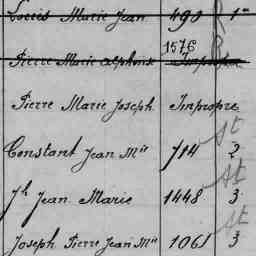 Louis Marie Jean 490 1
1576
Pierre Marie Alphonse Impropre
Pierre Marie Joseph Impropre
St
Constant Jean Mie 714 2
St
Jh Jean Marie 1448 3
St
Joseph Pierre Jean Mie 1061 3